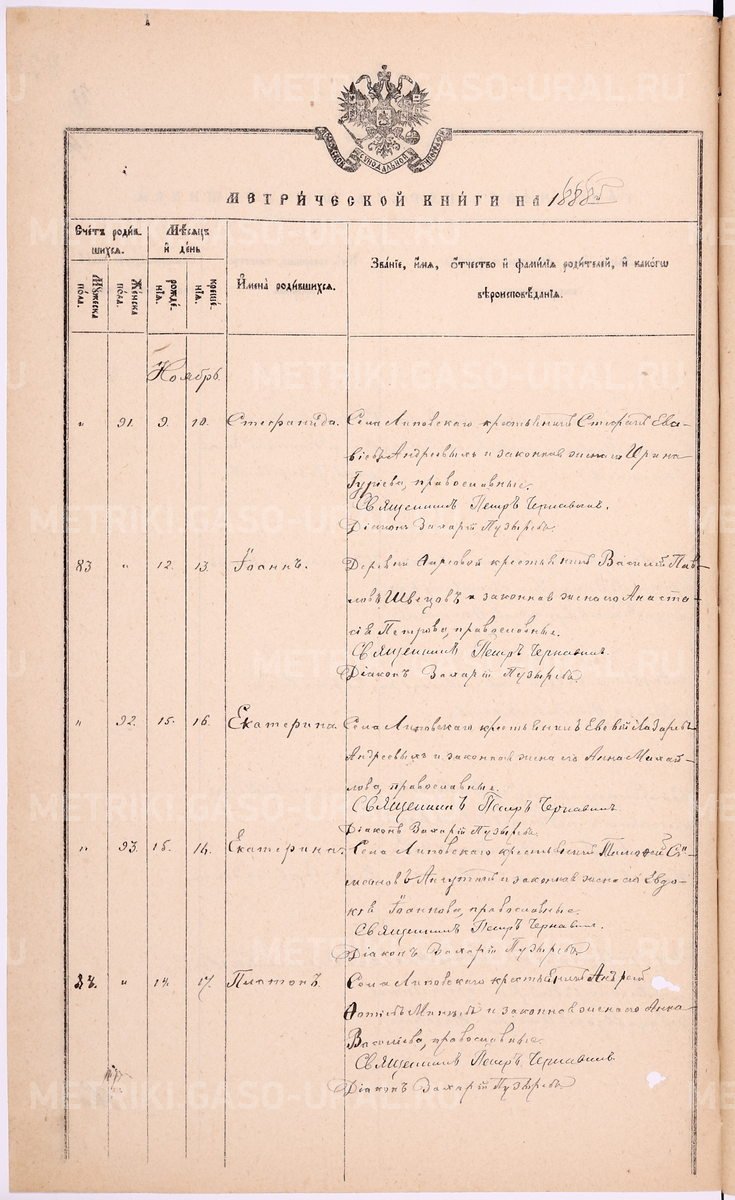 МОСКОВСКОЙ СѴНОДАЛЬНОЙ ТИПОГРАФІИ
МЕТРИ́ЧЕСКОЙ КНИ́ГИ НА 1888й
Сче́тъ роди́в- Мѣ́сяцъ
шихся. и҆ де́нь
Му́жеска по́ла. Же́нска по́ла. рожде́нїѧ. креще́нїѧ. И҆мена̀ роди́вшихся. Зва́нїе, и҆́мѧ, ѻ҆́тчество и҆ фами́лїѧ роди́телей, и҆ како́гѡ
вѣроисповѣ́данїѧ.
Ноябрь
„ 91. 9. 10. Стефанида. Села Липовскаго крестьянинъ Стефанъ Ева-
віевъ Андреевыхъ и законная жена его Ирина
Гуріева, православные.
Священникъ Петръ Чернавинъ.
Діаконъ Захарій Пузыревъ.
83 „ 12. 13. Іоаннъ. Деревни крестьянинъ Василій Пав-
ловъ Швецовъ и законная жена его Анаста-
сія Петрова, православные.
Священникъ Петръ Чернавинъ.
Діаконъ Захарій Пузыревъ.
„ 92. 15. 16. Екатерина. Села Липовскаго крестьянинъ Евсевій Лазаревъ
Андреевыхъ и законная жена его Анна Михай-
лова, православные.
Священникъ Петръ Чернавинъ.
Діаконъ Захарій Пузыревъ.
„ 93. 15. Екатерина. Села Липовскаго крестьянинъ Тимофей Си-
меоновъ и законная жена его Евдо-
кія Іоаннова, православные.
Священникъ Петръ Чернавинъ.
Діаконъ Захарій Пузыревъ
84. „ 14. 17. Платонъ. Села Липовскаго крестьянинъ Андрей
и законная жена его Анна
Василіева, православные.
Священникъ Петръ Чернавинъ
Діаконъ Захарій Пузыревъ
METRIKI.GASO-URAL.RU